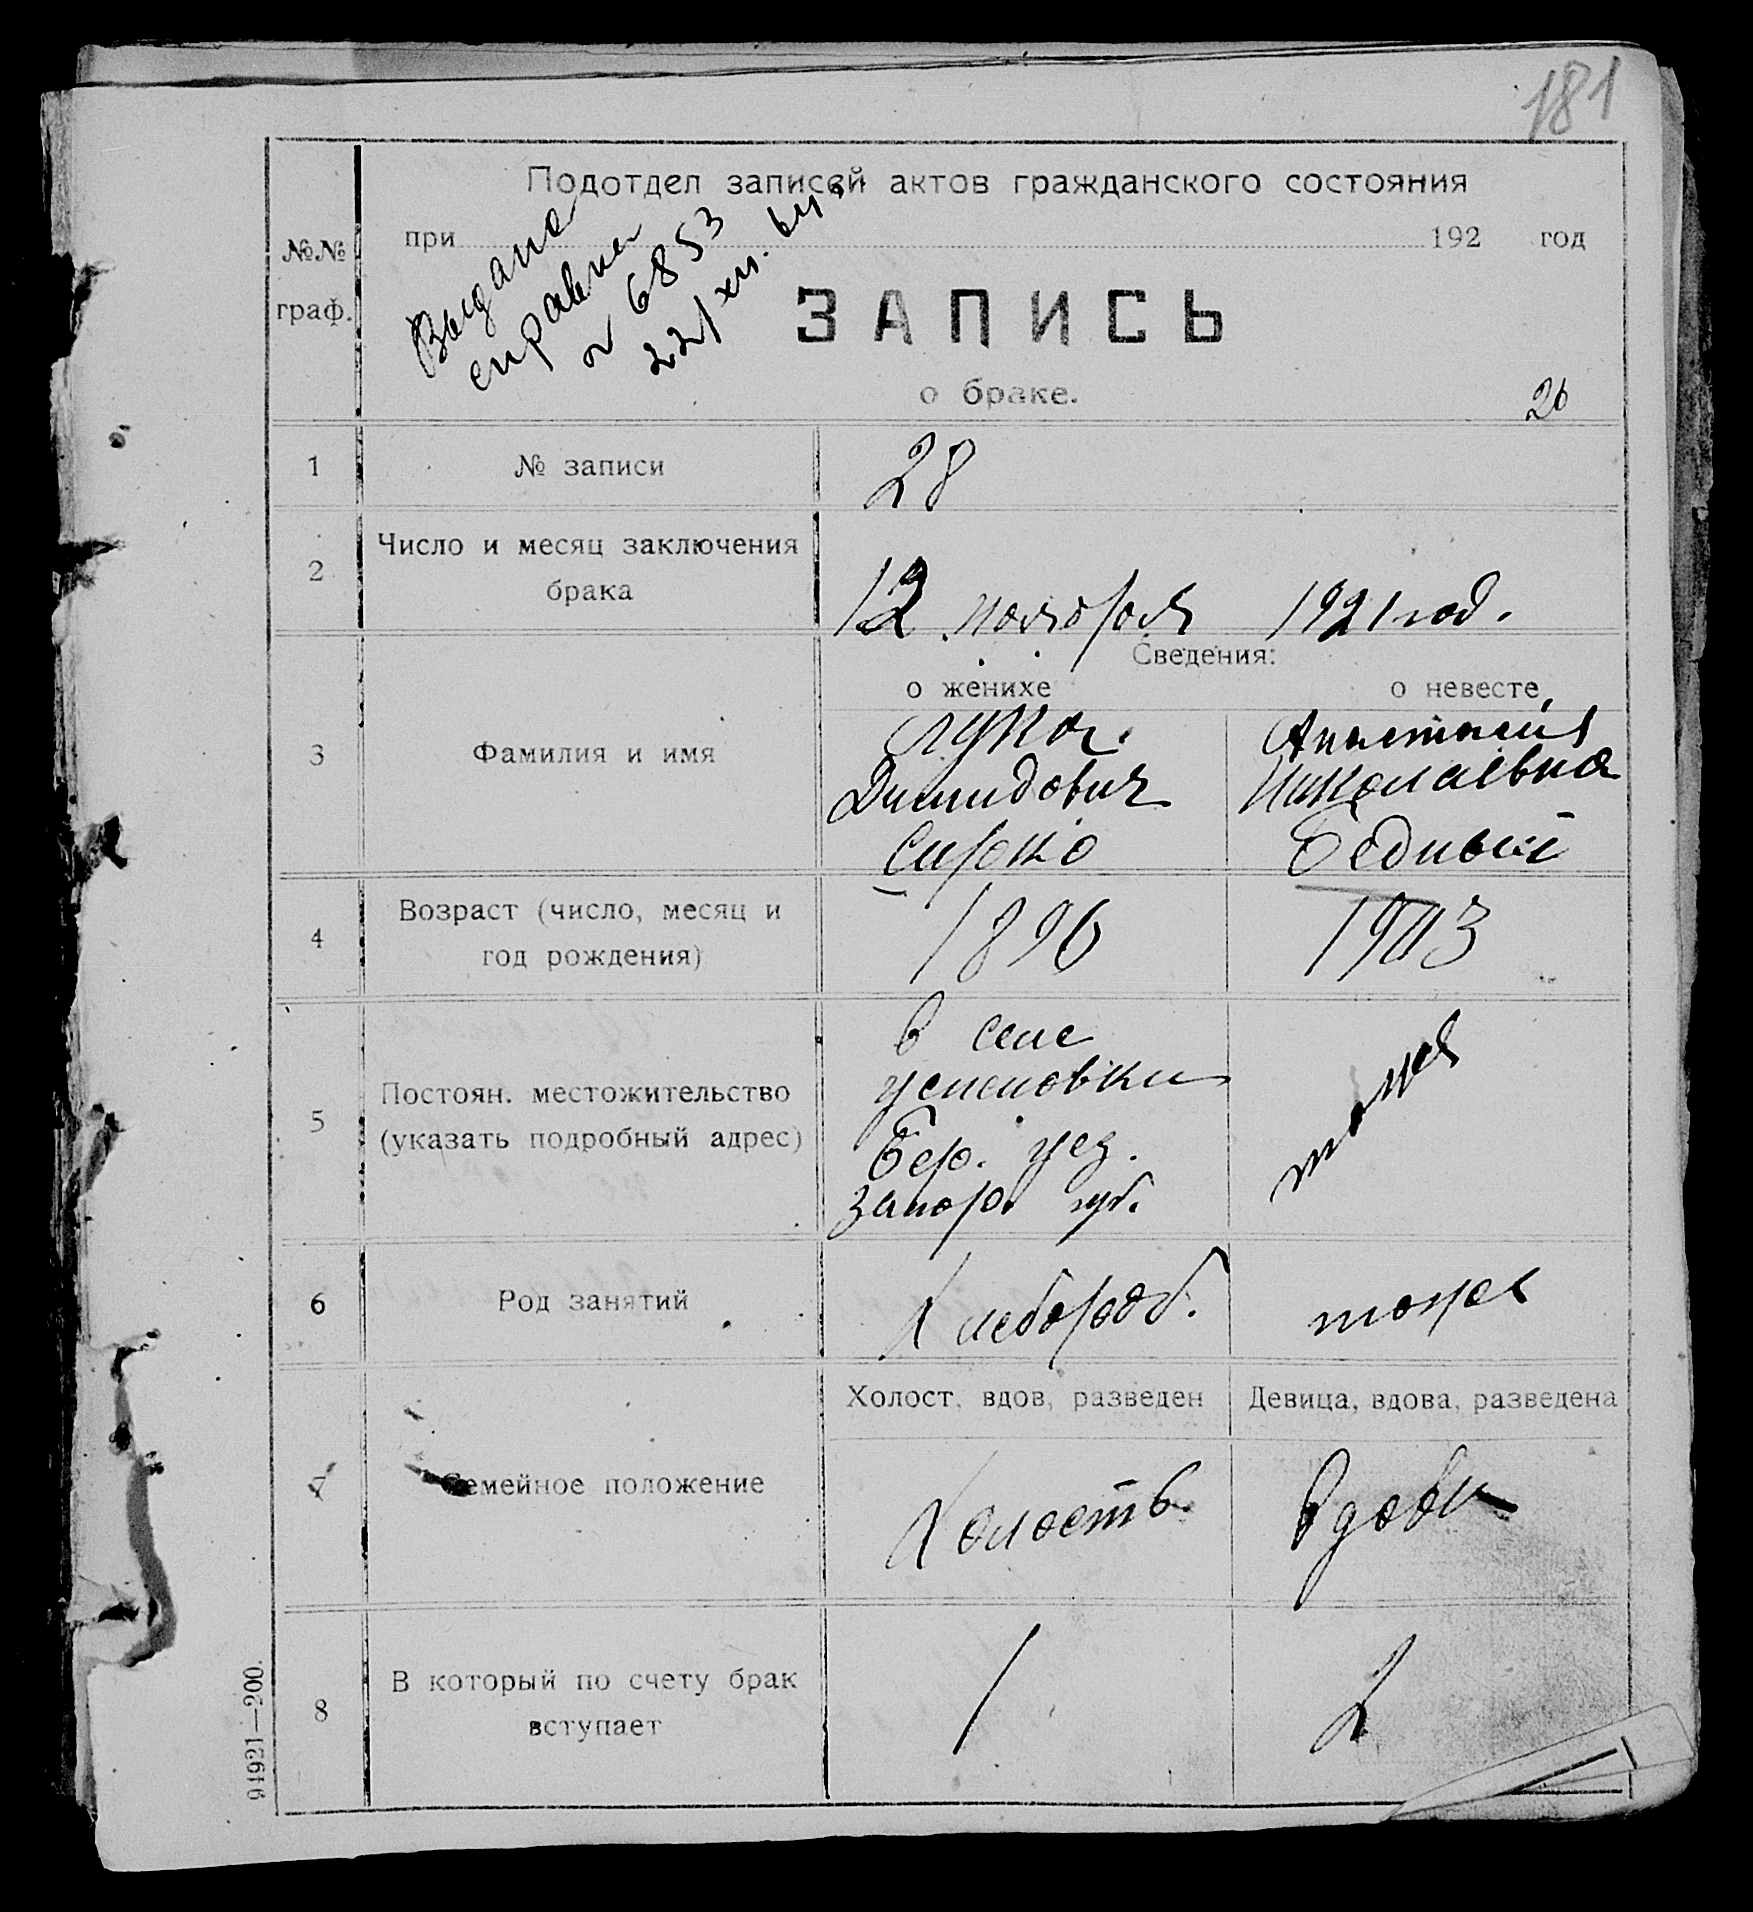 181
Подотдел записей актов гражданского состояния
при 192 год
№№
граф.
Выдана
справка
№ 6853
22/XII.
ЗАПИСЬ
о браке.
26
1 № записи 28
2 Число и месяц заключения
брака
12 ноября 1921 год.
Сведения:
о женихе о невесте
3 Фамилия и имя
Лука Анастасия
Димидович Николаевна
Сирко Бедный
4 Возраст (число, месяц и
год рождения)
1896 1903
5 Постоян. местожительство
(указать подробный адрес)
в селе
успеновки
Бер. уез.
Запор. губ.
тоже
6 Род занятий Хлебороб. тоже
Холост, вдов, разведен Девица, вдова, разведена
7 Семейное положение Холостъ. вдова
8 В который по счету брак
вступает
1 2
91921—200.